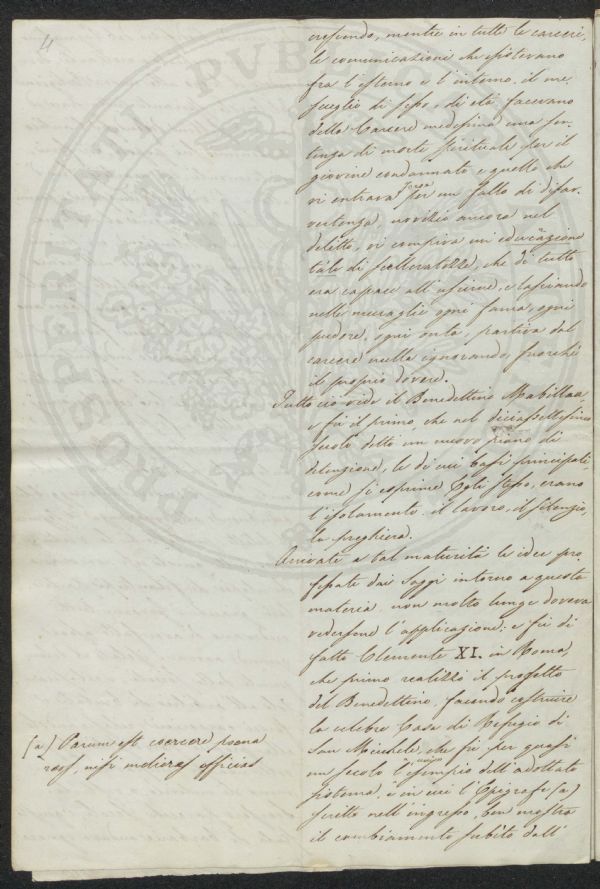 4
crescendo, mentre in tutte le carceri,
le comunicazioni che esistevano
fra l'esterno e l'interno, il me-
scuglio di sesso, di età facevano
della Carcere medesima una sen-
tenza di morte spirituale per il
giovine condannato e quello che
vi entrava forse per un fallo di disav-
vertenza, novizio ancora nel
delitto, vi compiva un educazione
tale di scelleratezze, che di tutto
era capace all'uscirne, e lasciando
nelle muraglie ogni fama, ogni
pudore, ogni onta, partiva dal
carcere nulla ignorando, fuorchè
il proprio dovere.
Tutto ciò vide il Benedettino Mabillon,
e fù il primo, che nel diciassettesimo
secolo dettò un nuovo piano di
detenzione, le di cui basi principali
come si esprime Egli stesso, erano
l'isolamento, il lavoro, il silenzio,
la preghiera.
Arrivate a tal maturità le idee pro-
fessate dai Saggi intorno a questa
materia, non molto lunge doveva
vedersene l'applicazione: e fù di
fatto Clemente XI. in Roma,
che primo realizzò il progetto
del Benedettino, facendo costruire
la celebre Casa di Rifugio di
San Michele, che fù per quasi
un secolo l'unico esempio dell'adottato
sistema, e in cui l'Epigrafe (a)
scritta nell'ingresso, ben mostra
il cambiamento subìto dall'
(a) Parum est coercere poena
nisi efficias
PROSPERITATI PVBLICAE